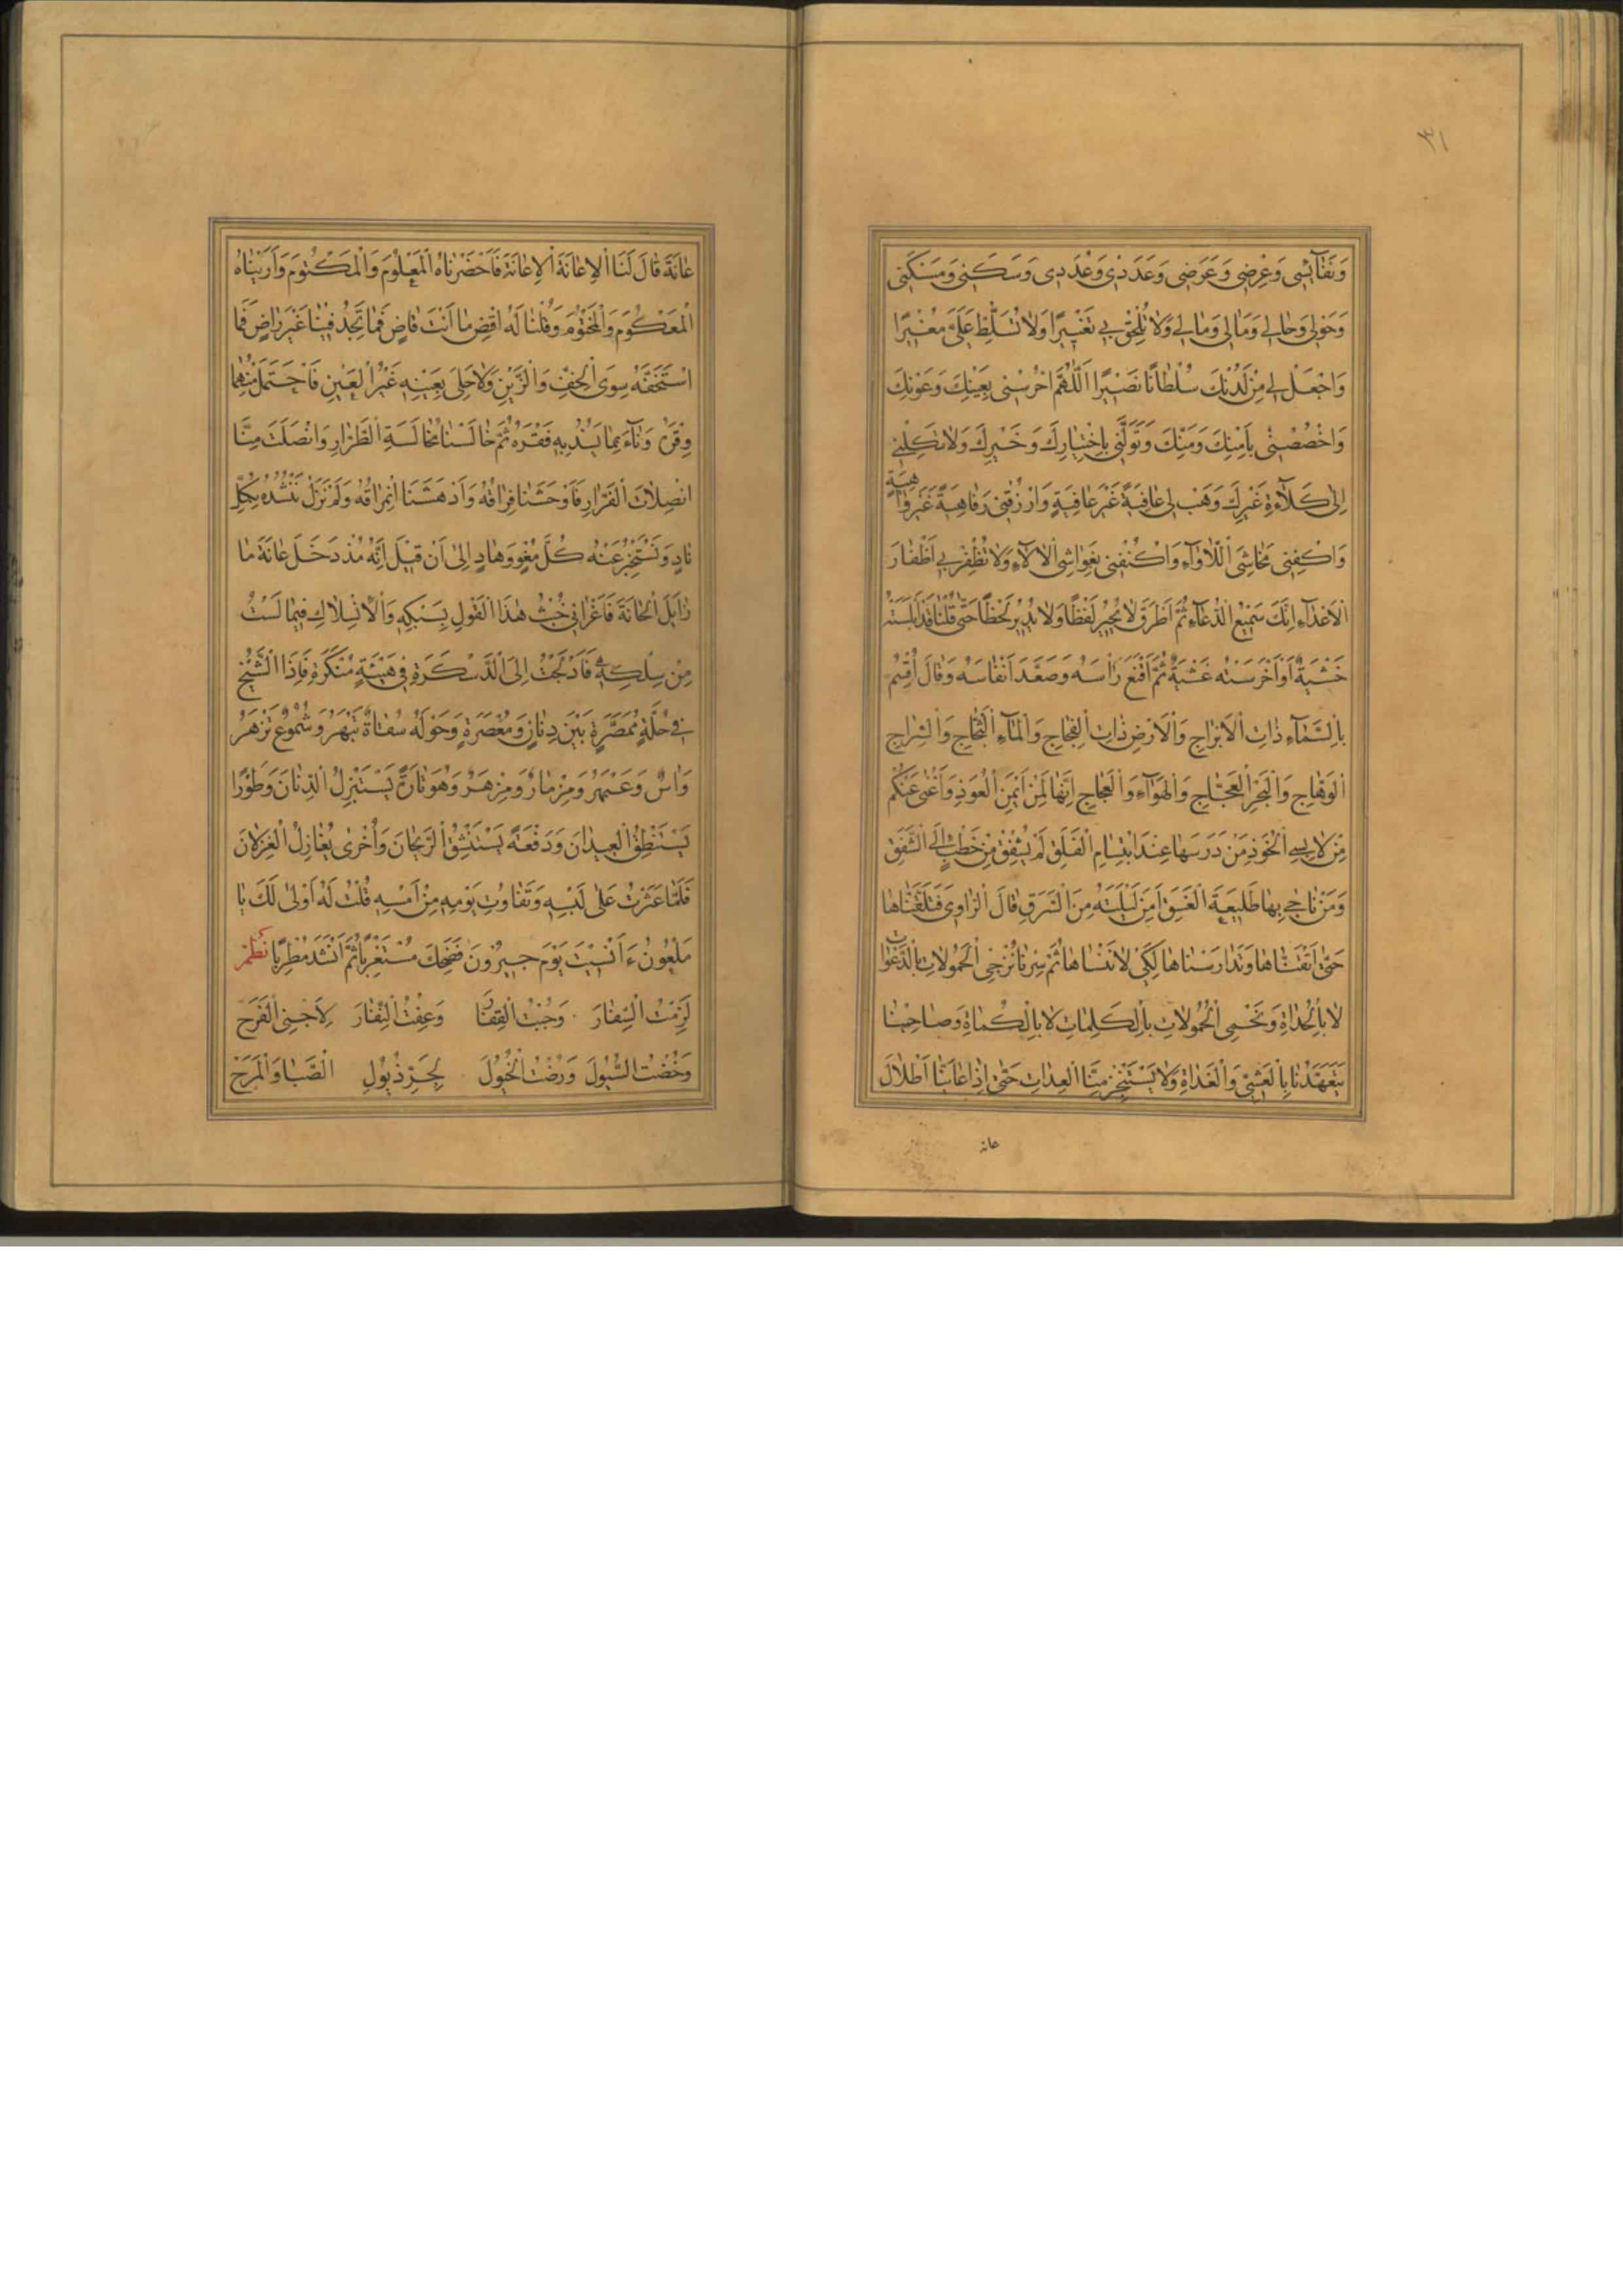 ٣١
وَنَفَآئِسِي وَعِرْضِي وَعَرَضِي وَعَدَدِي وَعُدَدِي وَسَكَنِي وَمَسْكَنِي
وَحَوْلِي وَحَالِي وَمَالِي وَمَاٰلِي وَلَا تُلْحِقْ بِي تَغْيِيرًا وَلَا تُسَلِّطْ عَلَيَّ مُغِيْرًا
وَاجْعَلْ لِي مِنْ لَدُنْكَ سُلْطَانًا نَصِيْرًا اَللّٰهُمَّ احْرُسْنِي بِعَيْنِكَ وَعَوْنِكَ
وَاخْصُصْنِي بِاَمْنِكَ وَمَنِّكَ وَتَوَلَّنِي بِاخْتِيَارِكَ وَخَيْرِكَ وَلَا تَكِلْنِي
اِلٰى كَلَآءَةِ غَيْرِكَ وَهَبْ لِي عَافِيَةً غَيْرَ عَافِيَةٍ وَارْزُقْنِي رَفَاهِيَةً غَيْرَ وَاهِيَةٍ
وَاكْفِنِي مَخَاشِيَ اللَّأْوَآءِ وَاكْنُفْنِي بِغَوَاشِي الْاٰلَآءِ وَلَا تُظْفِرْ بِي اَظْفَارَ
الْاَعْدَآءِ اِنَّكَ سَمِيْعُ الدُّعَآءِ ثُمَّ اَطْرَقَ لَا يُحِيْرُ لَفْظًا وَلَا يُدِيْرُ لَحْظًا حَتّٰى قُلْنَا قَدْ اَبْلَسَتْهُ
خَشْيَةٌ اَوْ اَخْرَسَتْهُ غَشْيَةٌ ثُمَّ اَقْنَعَ رَاْسَهُ وَصَعَّدَ اَنْفَاسَهُ وَقَالَ اُقْسِمُ
بِالسَّمَآءِ ذَاتِ الْاَبْرَاجِ وَالْاَرْضِ ذَاتِ الْفِجَاجِ وَالْمَآءِ الثَّجَّاجِ وَالسِّرَاجِ
الْوَهَّاجِ وَالْبَحْرِ الْعَجَّاجِ وَالْهَوَآءِ وَالْعَجَاجِ اِنَّهَا لَمِنْ اَيْمَنِ الْعُوَذِ وَاَغْنٰى عَنْكُمْ
مِنْ لَابِسِي الْخُوَذِ مَنْ دَرَسَهَا عِنْدَ ابْتِسَامِ الْفَلَقِ لَمْ يُشْفِقْ مِنْ خَطْبٍ اِلَى الشَّفَقِ
وَمَنْ نَاجٰى بِهَا طَلِيْعَةَ الْغَسَقِ اَمِنَ لَيْلَتَهُ مِنَ السَّرَقِ قَالَ الرَّاوِي فَتَلَقَّنَّاهَا
حَتّٰى اَتْقَنَّاهَا وَتَدَارَسْنَاهَا لِكَيْ لَا نَنْسَاهَا ثُمَّ سِرْنَا نُزْجِي الْحَمُولَاتِ بِالدَّعَوَاتِ
لَا بِالْحُدَاةِ وَنَحْمِي الْحُمُولَاتِ بِالْكَلِمَاتِ لَا بِالْكُمَاةِ وَصَاحِبُنَا
يَتَعَهَّدُنَا بِالْعَشِيِّ وَالْغَدَاةِ وَلَا يَسْتَنْجِزُ مِنَّا الْعِدَاتِ حَتّٰى اِذَا عَايَنَّا اَطْلَالَ
عانة
عَانَةَ قَالَ لَنَا الْاِعَانَةَ الْاِعَانَةَ فَاَحْضَرْنَاهُ الْمَعْلُوْمَ وَالْمَكْتُوْمَ وَاَرَيْنَاهُ
الْمَعْكُوْمَ وَالْمَخْتُوْمَ وَقُلْنَا لَهُ اقْضِ مَا اَنْتَ قَاضٍ فَمَا تَجِدُ فِيْنَا غَيْرَ رَاضٍ فَمَا
اسْتَخَفَّهُ سِوَى الْخِفِّ وَالزَّيْنِ وَلَا حَلِيَ بِعَيْنِهِ غَيْرُ الْعَيْنِ فَاحْتَمَلَ مِنْهُمَا
وِقْرَهُ وَنَآءَ بِمَا يَسُدُّ بِهِ فَقْرَهُ ثُمَّ خَالَسَنَا مُخَالَسَةَ الطَّرَّارِ وَانْصَلَتَ مِنَّا
انْصِلَاتَ الْفَرَّارِ فَاَوْحَشَنَا فِرَاقُهُ وَاَدْهَشَنَا امْتِرَاقُهُ وَلَمْ نَزَلْ نَنْشُدُهُ بِكُلِّ
نَادٍ وَنَسْتَخْبِرُ عَنْهُ كُلَّ مُغْوٍ وَهَادٍ اِلٰى اَنْ قِيْلَ اِنَّهُ مُذْ دَخَلَ عَانَةَ مَا
زَايَلَ الْحَانَةَ فَاَغْرَانِي خُبْثُ هٰذَا الْقَوْلِ بِسَبْكِهِ وَالْاِنْسِلَاكِ فِيْمَا لَسْتُ
مِنْ سِلْكِهِ فَادَّلَجْتُ اِلَى الدَّسْكَرَةِ فِي هَيْئَةٍ مُنَكَّرَةٍ فَاِذَا الشَّيْخُ
فِي حُلَّةٍ مُمَصَّرَةٍ بَيْنَ دِنَانٍ وَمِعْصَرَةٍ وَحَوْلَهُ سُقَاةٌ تَبْهَرُ وَشُمُوْعٌ تَزْهَرُ
وَاٰسٌ وَعَبْهَرٌ وَمِزْمَارٌ وَمِزْهَرٌ وَهُوَ تَارَةً يَسْتَبْزِلُ الدِّنَانَ وَطَوْرًا
يَسْتَنْطِقُ الْعِيْدَانَ وَدَفْعَةً يَسْتَنْشِقُ الرَّيْحَانَ وَاُخْرٰى يُغَازِلُ الْغِزْلَانَ
فَلَمَّا عَثَرْتُ عَلٰى لَبْسِهِ وَتَفَاوُتِ يَوْمِهِ مِنْ اَمْسِهِ قُلْتُ لَهُ اَوْلٰى لَكَ يَا
مَلْعُوْنُ ءَاُنْسِيْتَ يَوْمَ جَيْرُوْنَ فَضَحِكَ مُسْتَغْرِبًا ثُمَّ اَنْشَدَ مُطْرِبًا نظم
لَزِمْتُ السِّفَارَ وَجُبْتُ الْقِفَارَ وَعِفْتُ النِّفَارَ لِاَجْنِي الْفَرَحَ
وَخُضْتُ السُّيُوْلَ وَرُضْتُ الْخُيُوْلَ لِجَرِّ ذُيُوْلِ الصِّبَا وَالْمَرَحَ